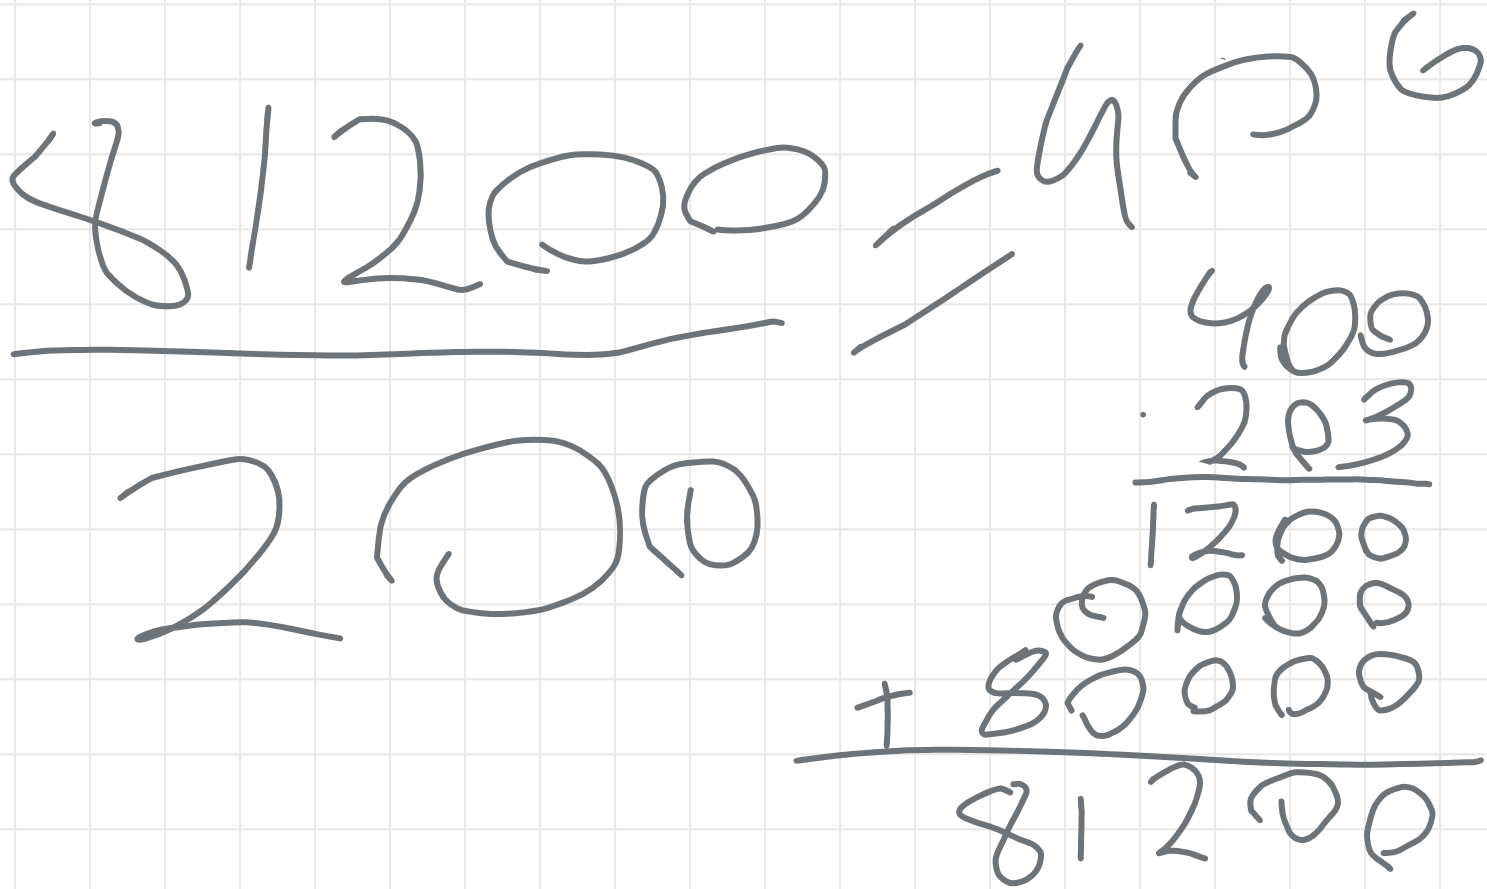 81200 = 406
200
400
. 203
1200
0000
+ 80000
81200